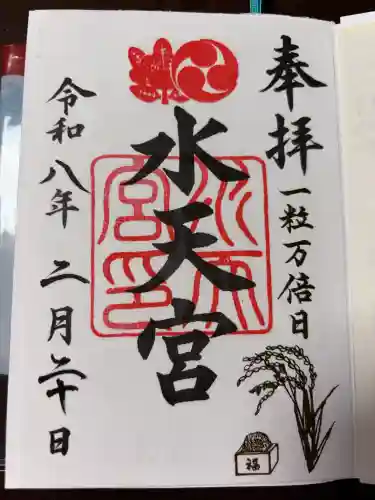 奉拝
一粒万倍日
水天宮
水天宮印
令和八年 二月二十日
福